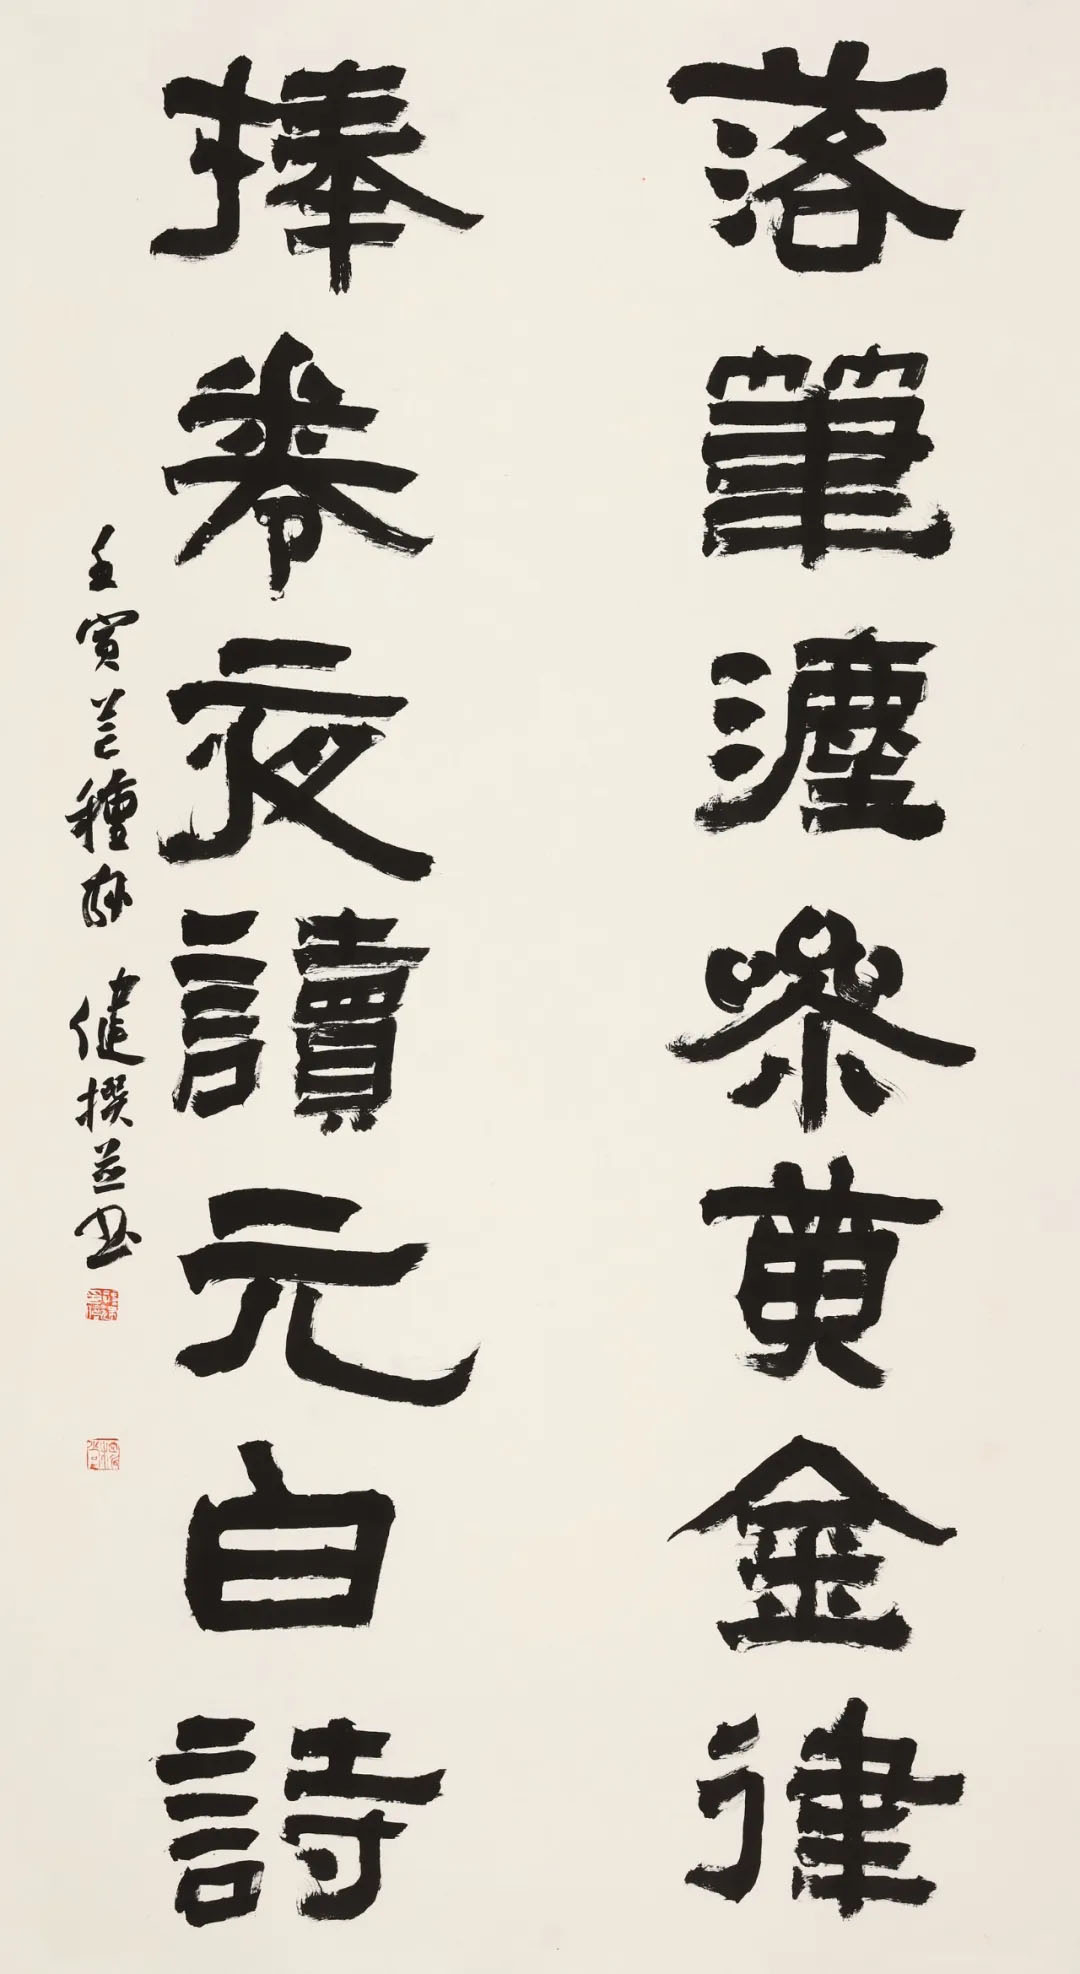 落筆瀍參黄金律
捧卷夜讀元白詩
壬寅芒種 健撰並书